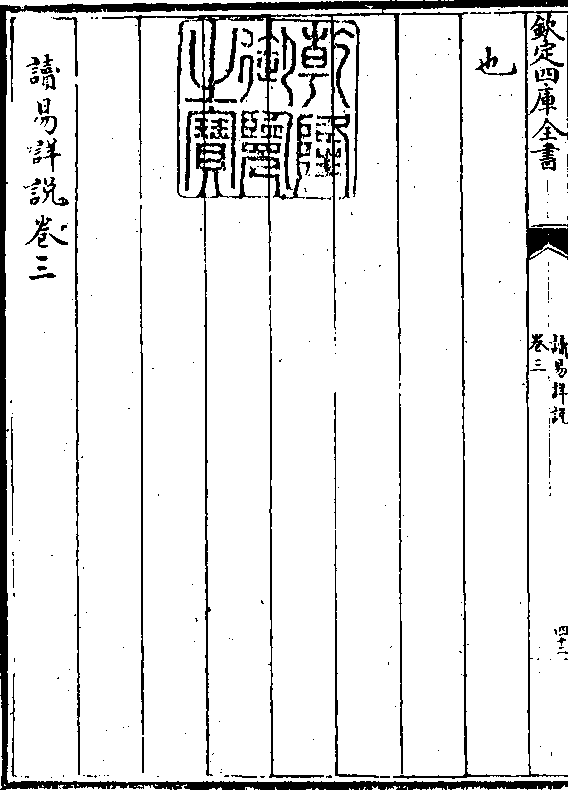 欽定四庫全書
讀易詳説
卷三
四十二
也
乾隆
御覽
之寶
讀易詳説卷三